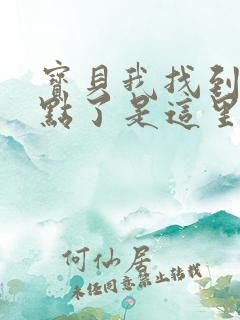 寶貝我找到
點了是這里
何仙居
未经同意禁止转载